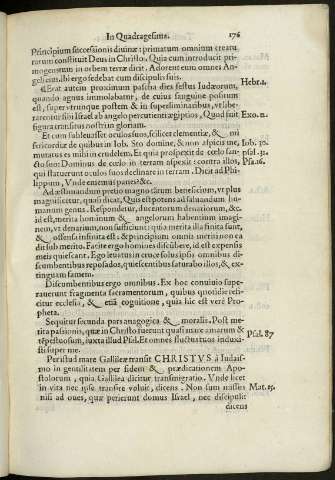 In Quadragesima. 176
Principium successionis diuinæ: primatum omnium creatu
rarum constituit Deus in Christo. Quia cum introducit pri-
mogenitum in orbem terræ dicit. Adorent eum omnes An-
geli eius. ibi ergo sedebat cum discipulis suis.
Erat autem proximum pascha dies festus Iudæorum, Hebr. 1.
quando agnus immolabatur, de cuius sanguine positum
est, super vtrunque postem & in superliminaribus, vt libe-
rarentur filii Israel ab angelo percutienti ægiptios, Quod fuit Exo. 12.
figura transitus nostri in gloriam.
Et cum subleuasset oculos suos, scilicet clementiæ, & mi
sericordiæ de quibus in Iob. Sto domine, & non aspicis me, Iob. 30.
mutatus es mihi in crudelem. Et quia prospexit de cœlo san- psal. 31.
cto suo: Dominus de cœlo in terram aspexit: contra illos, Psa. 16.
qui statuerunt oculos suos declinare in terram. Dicit ad Phi-
lippum, Vnde ememus panes? &c.
Ad æstimandum pretio magno tãtum beneficium, vt plus
magnificetur, quasi dicat, Quis est potens ad saluandum hu-
manum genus. Respondetur, ducentorum denariorum, &c.
id est, merita hominum & angelorum habentium imagi-
nem, vt denarium, non sufficiunt: quia merita illa finita sunt,
& offensa infinita est: & principium omnis meriti non ca
dit sub merito. Facite ergo homines discũbere, id est expensis
meis quiescant. Ego leuatus in cruce solus ipsis omnibus di-
scumbentibus reposado, quiescentibus saturabo illos, & ex-
tinguam famem.
Discumbentibus ergo omnibus. Ex hoc conuiuio supe-
rauerunt fragmenta sacramentorum, quibus quotidie refi-
citur ecclesia, & etiã cognitione, quia hic est verè Pro-
pheta.
Sequitur secunda pars anagogica & moralis. Post me
rita passionis, quæ in Christo fuerunt quasi mare amarum &
tẽpestuosum, iuxta illud Psal. Et omnes fluctus tuos induxi- Psal. 87
sti super me.
Per istud mare Galileæ transit CHRISTVS à Iudais-
mo in gentilitatem per fidem & prædicationem Apo-
stolorum, quia Galilea dicitur transmigratio. Vnde licet
in vita nec ipse transire voluit, dicens. Non sum missus Mat. 15.
nisi ad oues, quæ perierunt domus Israel, nec discipulis
dicens